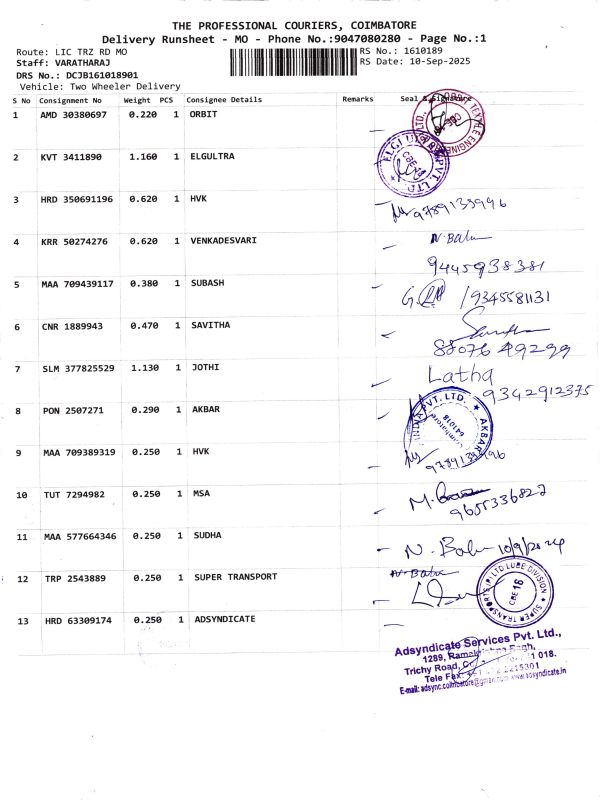 THE PROFESSIONAL COURIERS, COIMBATORE
Delivery Runsheet - MO - Phone No.:9047080280 - Page No.:1
Route: LIC TRZ RD MO
RS No.: 1610189
Staff: VARATHARAJ
RS Date: 10-Sep-2025
DRS No.: DCJB161018901
Vehicle: Two Wheeler Delivery
S No Consignment No Weight PCS Consignee Details Remarks Seal & Signature
1 AMD 30380697 0.220 1 ORBIT
2 KVT 3411890 1.160 1 ELGULTRA
ELGI ULTRA PVT. LTD.
3 HRD 350691196 0.620 1 HVK
9789135996
4 KRR 50274276 0.620 1 VENKADESVARI
N. Balu
9445938381
5 MAA 709439117 0.380 1 SUBASH
/9345581131
6 CNR 1889943 0.470 1 SAVITHA
88076 49299
7 SLM 377825529 1.130 1 JOTHI
Latha
9342912375
8 PON 2507271 0.290 1 AKBAR
PVT. LTD. ★ AKBAR
Coimbatore
641018
9 MAA 709389319 0.250 1 HVK
10 TUT 7294982 0.250 1 MSA
9655336822
11 MAA 577664346 0.250 1 SUDHA
N. Balu 10/9/2024
12 TRP 2543889 0.250 1 SUPER TRANSPORT
N. Balu
SUPER TRANSPORTS (P) LTD LUBE DIVISION
CBE 18
13 HRD 63309174 0.250 1 ADSYNDICATE
Adsyndicate Services Pvt. Ltd.,
1289,
Trichy Road, 018.
Tele Fax: 2215301
E-mail: adsync.coimbatore@gmail.com www.adsyndicate.in